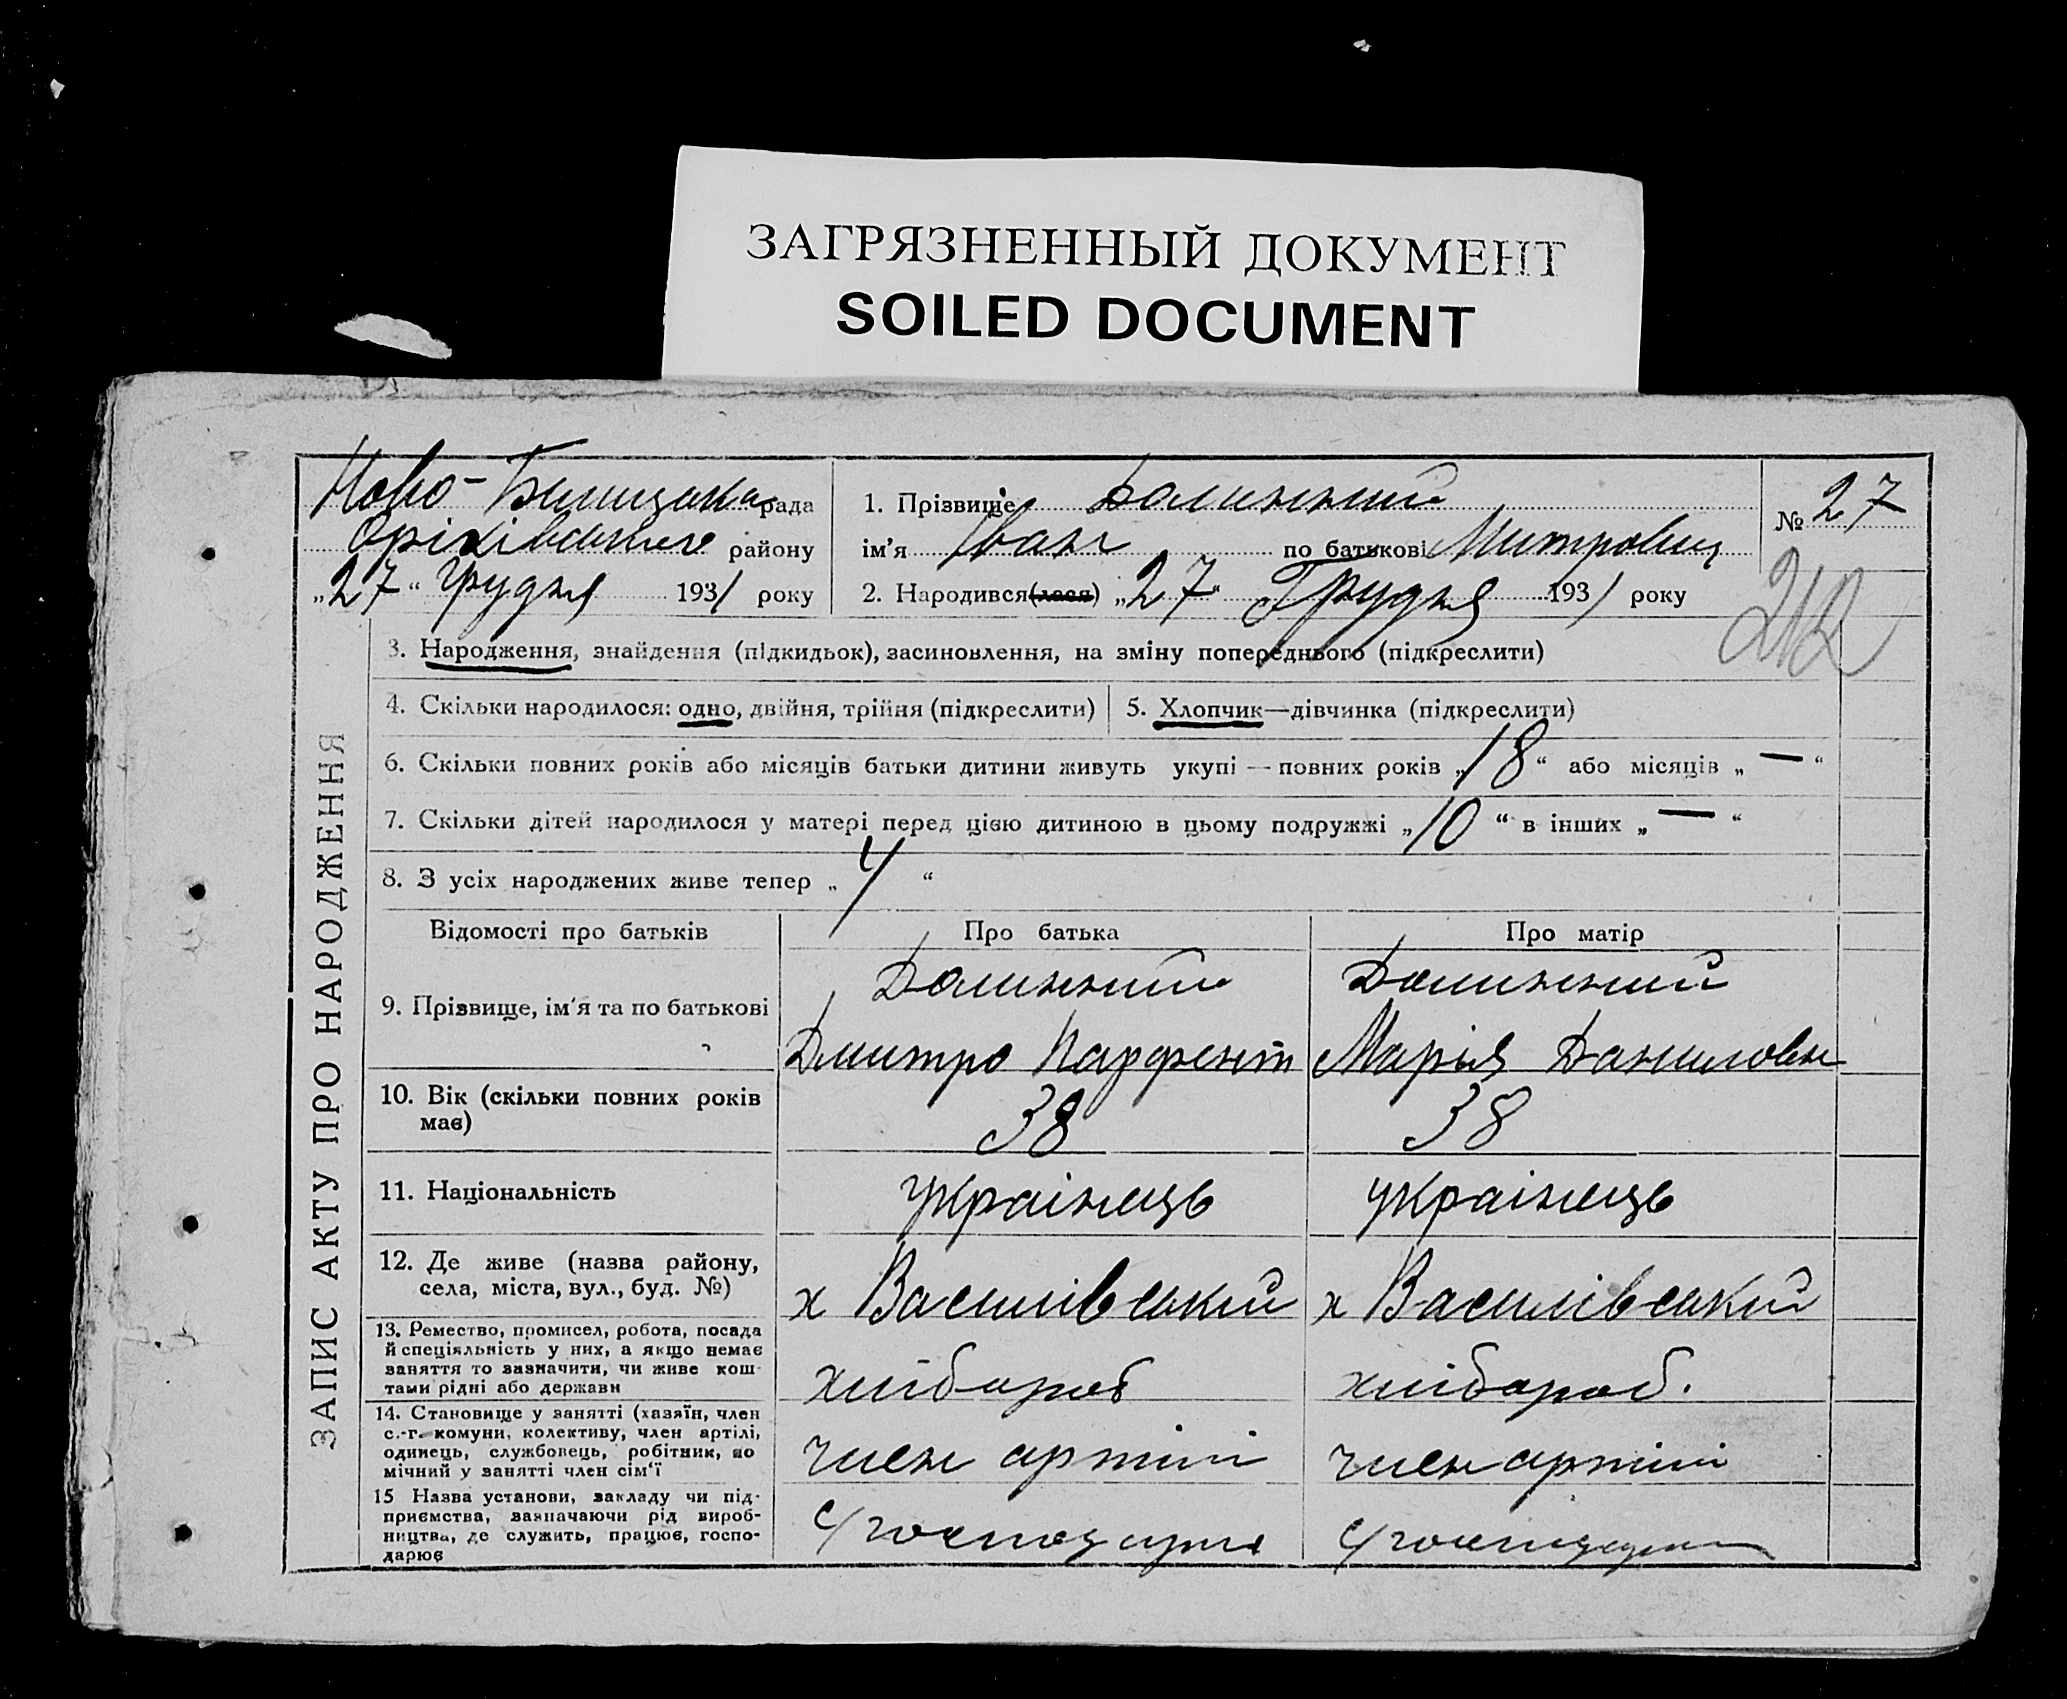 ЗАГРЯЗНЕННЫЙ ДОКУМЕНТ
SOILED DOCUMENT
Ново- рада
Оріхівського району
„27“ Грудня 1931 року
1. Прізвище Долинний
ім’я Іван по батькові Митрович
№ 27
2. Народився(лася) „27“ Грудня 1931 року
212
ЗАПИС АКТУ ПРО НАРОДЖЕННЯ
3. Народження, знайдення (підкидьок), засиновлення, на зміну попереднього (підкреслити)
4. Скільки народилося: одно, двійня, трійня (підкреслити) 5. Хлопчик—дівчинка (підкреслити)
6. Скільки повних років або місяців батьки дитини живуть укупі — повних років „18“ або місяців „—“
7. Скільки дітей народилося у матері перед цією дитиною в цьому подружжі „10“ в інших „—“
8. З усіх народжених живе тепер „4“
Відомості про батьків Про батька Про матір
9. Прізвище, ім’я та по батькові
Долинний
Дмитро Парфент
Долинний
Марія Даниловн
10. Вік (скільки повних років
має)
38
38
11. Національність
українець
українець
12. Де живе (назва району,
села, міста, вул., буд. №)
х Василівський
х Василівський
13. Ремество, промисел, робота, посада
й спеціяльність у них, а якщо немає
заняття то зазначити, чи живе кош-
тами рідні або держави
хлібороб
хлібороб.
14. Становище у занятті (хазяїн, член
с.-г. комуни, колективу, член артілі,
одинець, службовець, робітник, по
мічний у занятті член сім’ї
член артілі
член артілі
15 Назва установи, закладу чи під-
приємства, зазначаючи рід вироб-
ництва, де служить, працює, госпо-
дарює
с/господаря
с/господар